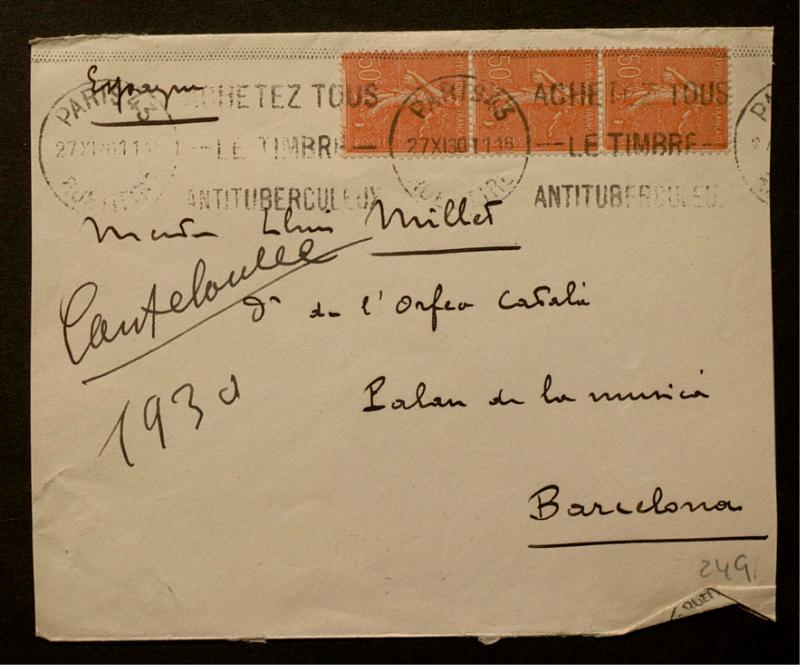 Espagne
PARIS 43
27 XI 30 11 15
ACHETEZ TOUS
LE TIMBRE
ANTITUBERCULEUX
50c 50c 50c
PARIS 43
27 XI 30 11 15
ACHETEZ TOUS
LE TIMBRE
ANTITUBERCULEUX
Lluis Millet
Canteloube
Dr de l'Orfeo Català
1930
Palau de la musicà
Barcelona
249